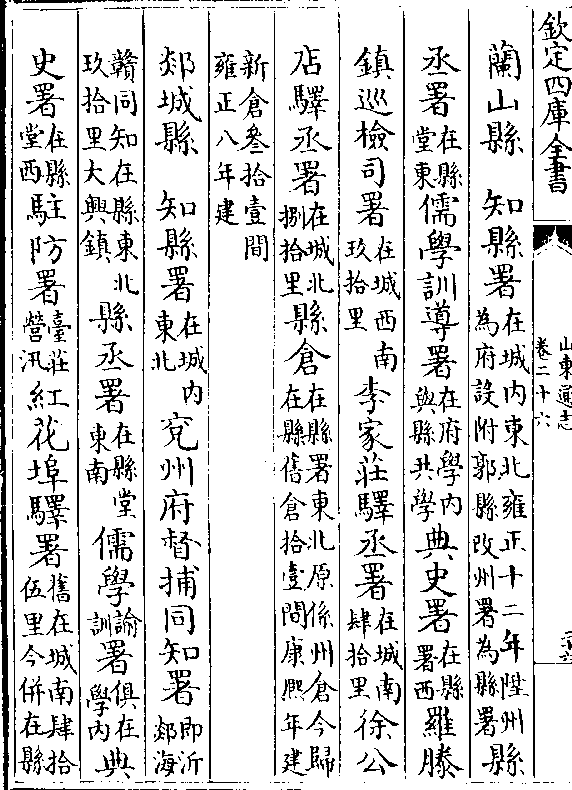 欽定四庫全書
山東通志
卷二十六
蘭山縣　知縣署在城內東北雍正十二年陞州
為府設附郭縣改州署為縣署縣
丞署在縣
堂東儒學訓導署在府學內
與縣共學典史署在縣
署西羅滕
鎮巡檢司署在城西南
玖拾里李家莊驛丞署在城南
肆拾里徐公
店驛丞署在城北
捌拾里縣倉在縣署東北原係州倉今歸
在縣舊倉拾壹間康熙年建
新倉叁拾壹間
雍正八年建
郯城縣　知縣署在城內
東北兗州府督捕同知署即沂
郯海
贛同知在縣東北
玖拾里大興鎮縣丞署在縣堂
東南儒學諭
訓署俱在
學內典
史署在縣
堂西駐防署臺莊
營汛紅花埠驛署舊在城南肆拾
伍里今併在縣